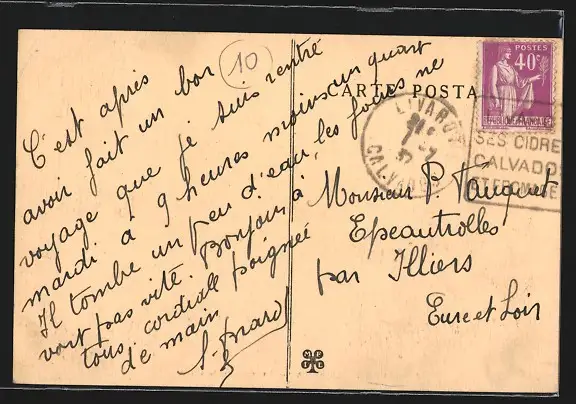 10
C'est après
avoir fait un bon
voyage que je suis rentré
mardi à 9 heures moins un quart
Il tombe un peu d'eau, les foires ne
vont pas vite. Bonjour à
tous, cordiale poignée
de main
CARTE POSTALE
POSTES
40c
REPUBLIQUE FRANÇAISE
LIVAROT
CALVADOS
SES CIDRE
CALVADO
ET FROMAGE
Monsieur P.
Epeautrolles
par Illiers
Eure et Loir